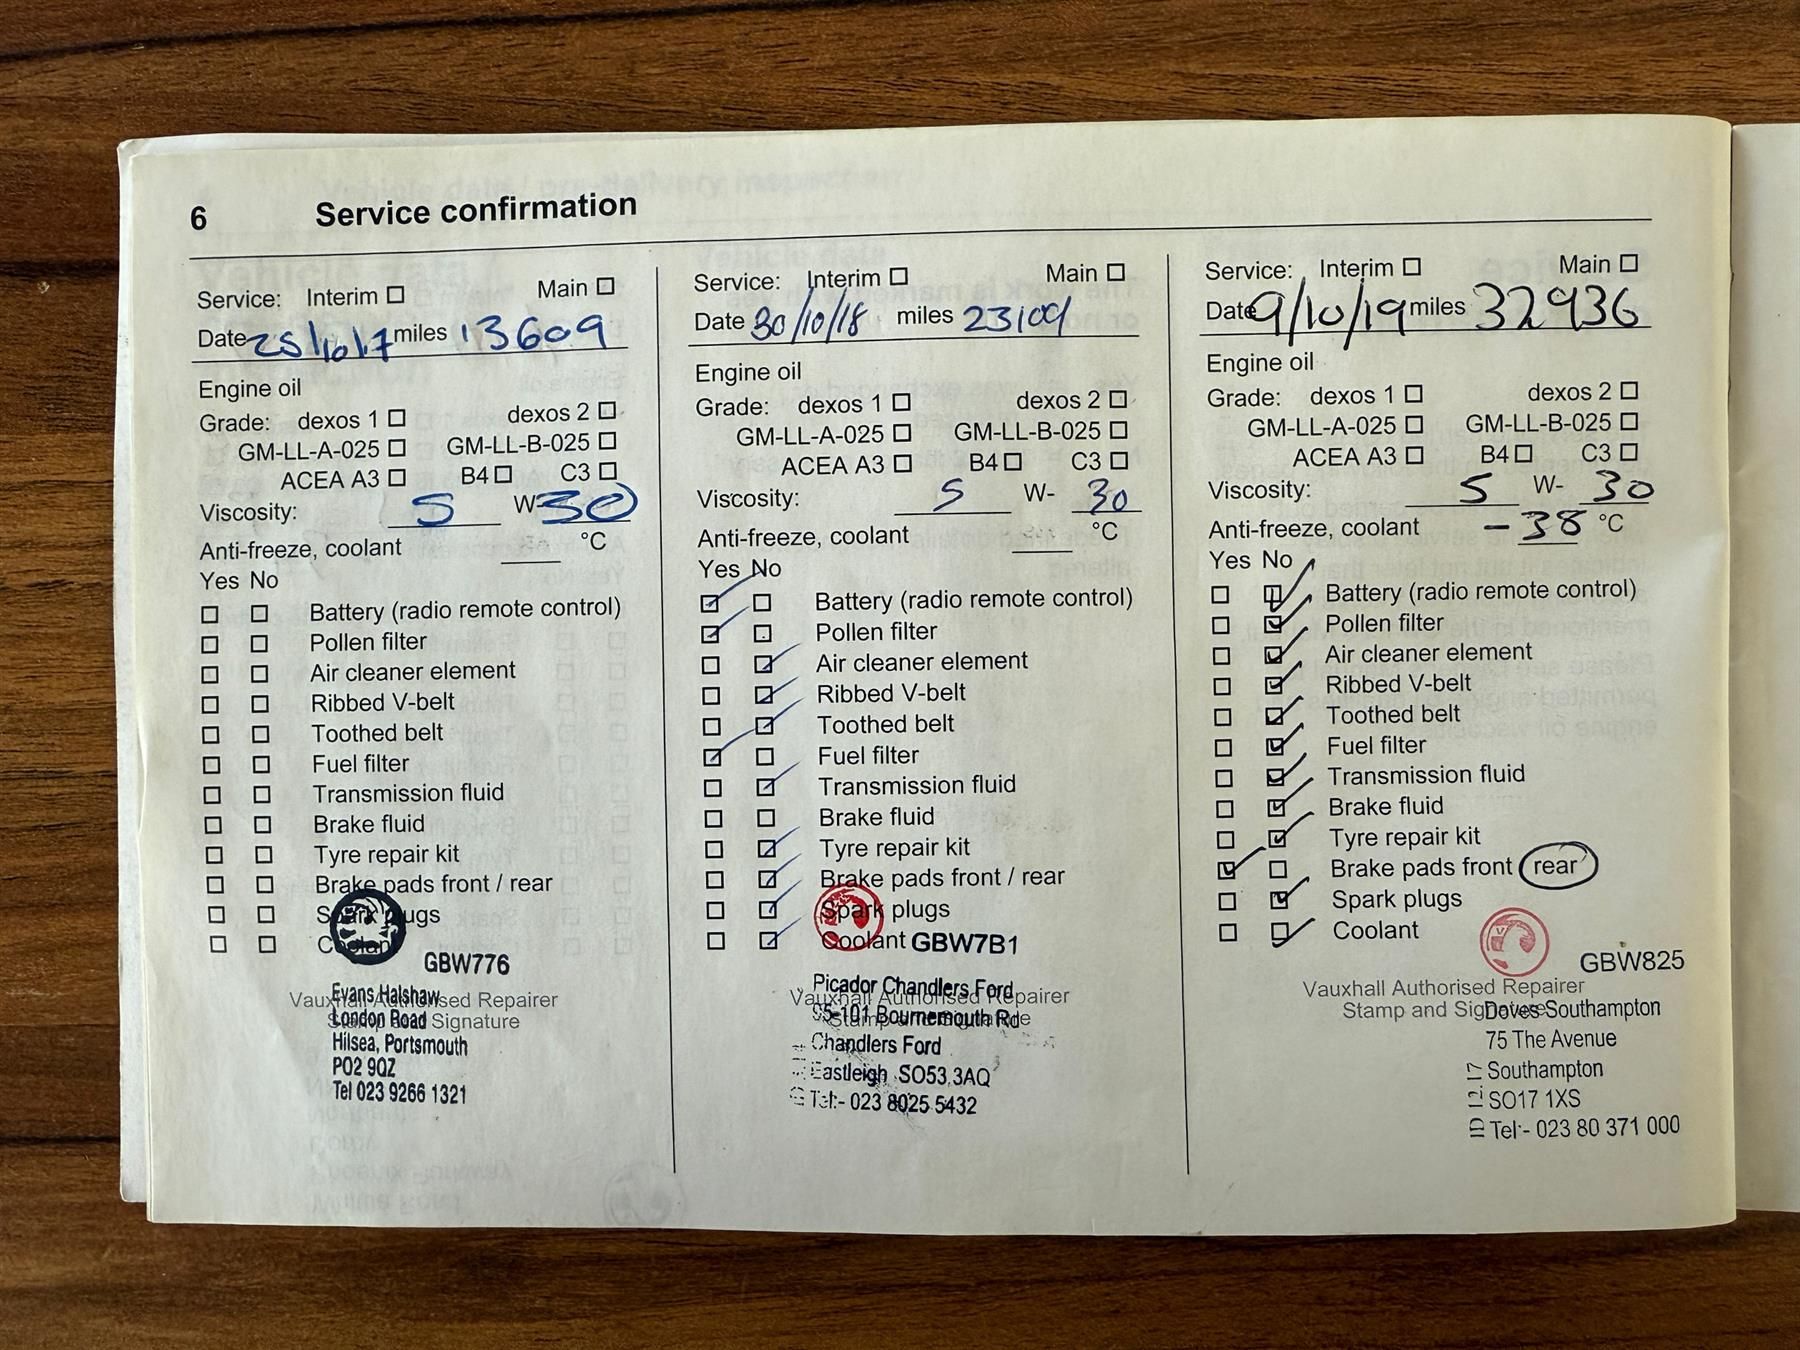 6 Service confirmation
Service: Interim ☐ Main ☐
Date 25/10/17 miles 13609
Engine oil
Grade: dexos 1 ☐ dexos 2 ☐
GM-LL-A-025 ☐ GM-LL-B-025 ☐
ACEA A3 ☐ B4 ☐ C3 ☐
Viscosity: 5 W- 30
Anti-freeze, coolant °C
Yes No
☐ ☐ Battery (radio remote control)
☐ ☐ Pollen filter
☐ ☐ Air cleaner element
☐ ☐ Ribbed V-belt
☐ ☐ Toothed belt
☐ ☐ Fuel filter
☐ ☐ Transmission fluid
☐ ☐ Brake fluid
☐ ☐ Tyre repair kit
☐ ☐ Brake pads front / rear
☐ ☐ Spark plugs
☐ ☐ Coolant
GBW776
Vauxhall Authorised Repairer
Stamp and Signature
Evans Halshaw
London Road
Hilsea, Portsmouth
PO2 9QZ
Tel 023 9266 1321
Service: Interim ☐ Main ☐
Date 30/10/18 miles 23109
Engine oil
Grade: dexos 1 ☐ dexos 2 ☐
GM-LL-A-025 ☐ GM-LL-B-025 ☐
ACEA A3 ☐ B4 ☐ C3 ☐
Viscosity: 5 W- 30
Anti-freeze, coolant °C
Yes No
☑ ☐ Battery (radio remote control)
☑ ☐ Pollen filter
☐ ☑ Air cleaner element
☐ ☑ Ribbed V-belt
☐ ☑ Toothed belt
☑ ☐ Fuel filter
☐ ☑ Transmission fluid
☐ ☐ Brake fluid
☐ ☑ Tyre repair kit
☐ ☑ Brake pads front / rear
☐ ☑ Spark plugs
☐ ☑ Coolant GBW7B1
Vauxhall Authorised Repairer
Stamp and Signature
Picador Chandlers Ford
95-101 Bournemouth Rd
Chandlers Ford
Eastleigh SO53 3AQ
Tel:- 023 8025 5432
Service: Interim ☐ Main ☐
Date 9/10/19 miles 32936
Engine oil
Grade: dexos 1 ☐ dexos 2 ☐
GM-LL-A-025 ☐ GM-LL-B-025 ☐
ACEA A3 ☐ B4 ☐ C3 ☐
Viscosity: 5 W- 30
Anti-freeze, coolant -38 °C
Yes No
☐ ☑ Battery (radio remote control)
☐ ☑ Pollen filter
☐ ☑ Air cleaner element
☐ ☑ Ribbed V-belt
☐ ☑ Toothed belt
☐ ☑ Fuel filter
☐ ☑ Transmission fluid
☐ ☑ Brake fluid
☐ ☑ Tyre repair kit
☑ ☐ Brake pads front rear
☐ ☑ Spark plugs
☐ ☑ Coolant
GBW825
Vauxhall Authorised Repairer
Stamp and Signature
Doves Southampton
75 The Avenue
Southampton
SO17 1XS
Tel:- 023 80 371 000